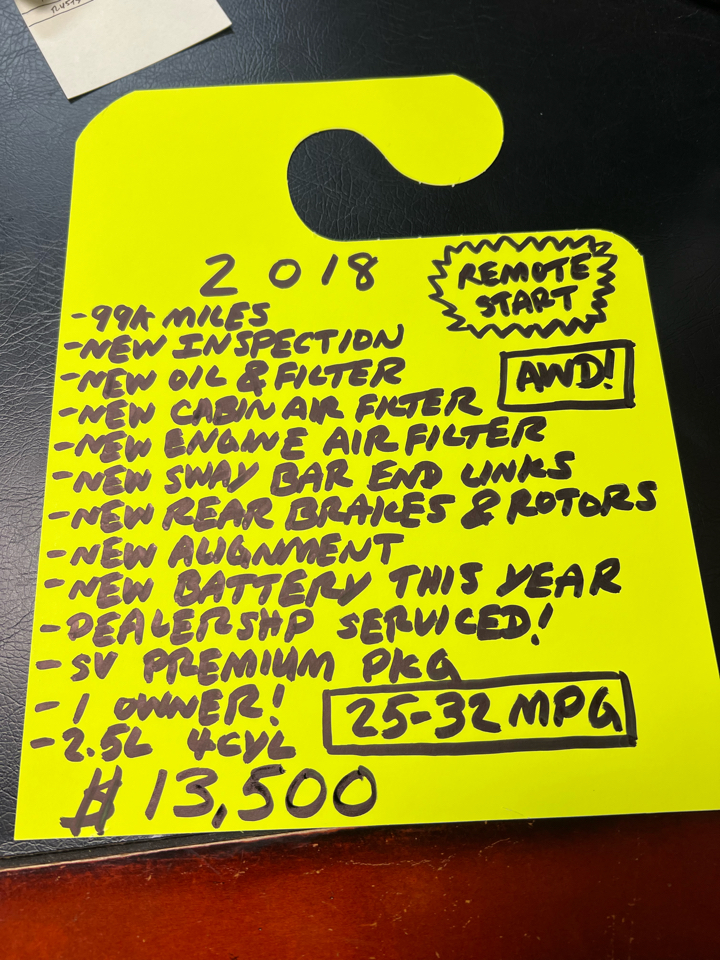 2018
REMOTE
START
-99K MILES
-NEW INSPECTION
-NEW OIL & FILTER
AWD!
-NEW CABIN AIR FILTER
-NEW ENGINE AIR FILTER
-NEW SWAY BAR END LINKS
-NEW REAR BRAKES & ROTORS
-NEW ALIGNMENT
-NEW BATTERY THIS YEAR
-DEALERSHP SERVICED!
-SV PREMIUM PKG
-1 OWNER!
25-32 MPG
-2.5L 4CYL
$13,500